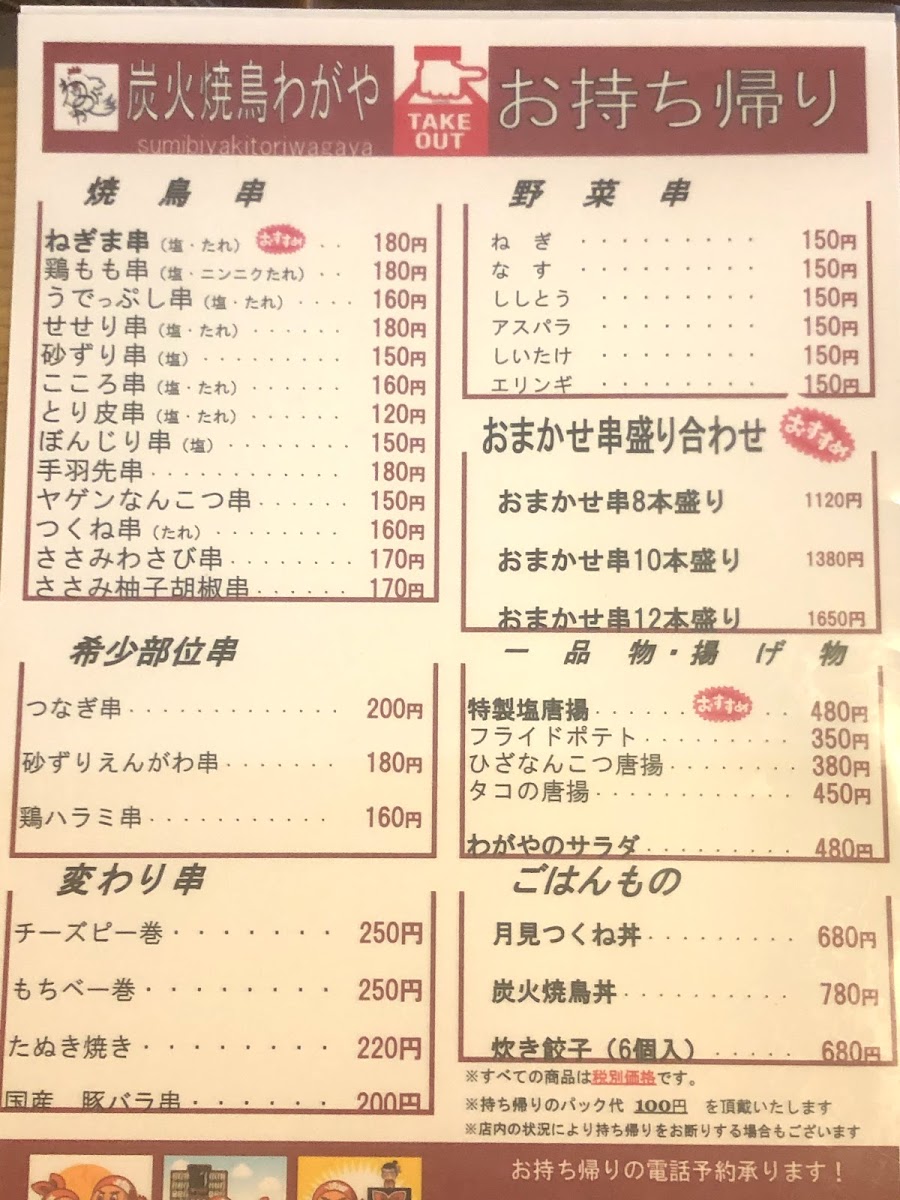 炭火焼鳥わがや
sumibiyakitoriwagaya
TAKE OUT
お持ち帰り
焼鳥串
ねぎま串（塩・たれ） おすすめ ・・ 180円
鶏もも串（塩・ニンニクたれ）・・ 180円
うでっぷし串（塩・たれ）・・・・ 160円
せせり串（塩・たれ）・・・・・・ 180円
砂ずり串（塩）・・・・・・・・・ 150円
こころ串（塩・たれ）・・・・・・ 160円
とり皮串（塩・たれ）・・・・・・ 120円
ぼんじり串（塩）・・・・・・・・ 150円
手羽先串・・・・・・・・・・・・ 180円
ヤゲンなんこつ串・・・・・・ 150円
つくね串（たれ）・・・・・・・・ 160円
ささみわさび串・・・・・・・・ 170円
ささみ柚子胡椒串・・・・・・ 170円
希少部位串
つなぎ串・・・・・・・・・・・ 200円
砂ずりえんがわ串・・・・・・ 180円
鶏ハラミ串・・・・・・・・・・・ 160円
変わり串
チーズピー巻・・・・・・・ 250円
もちベー巻・・・・・・・・ 250円
たぬき焼き・・・・・・・・ 220円
国産 豚バラ串・・・・・・ 200円
野菜串
ねぎ ・・・・・・・・・ 150円
なす ・・・・・・・・・ 150円
ししとう ・・・・・・・・ 150円
アスパラ ・・・・・・・・ 150円
しいたけ ・・・・・・・・ 150円
エリンギ ・・・・・・・・ 150円
おまかせ串盛り合わせ おすすめ
おまかせ串8本盛り 1120円
おまかせ串10本盛り 1380円
おまかせ串12本盛り 1650円
一品物・揚げ物
特製塩唐揚・・・・・ おすすめ ・・ 480円
フライドポテト・・・・・・・・・ 350円
ひざなんこつ唐揚・・・・・・・・ 380円
タコの唐揚・・・・・・・・・・・ 450円
わがやのサラダ・・・・・・・・・ 480円
ごはんもの
月見つくね丼・・・・・・・・ 680円
炭火焼鳥丼・・・・・・・・・ 780円
炊き餃子（6個入）・・・・・ 680円
※すべての商品は税別価格です。
※持ち帰りのパック代 100円 を頂戴いたします
※店内の状況により持ち帰りをお断りする場合もございます
お持ち帰りの電話予約承ります！